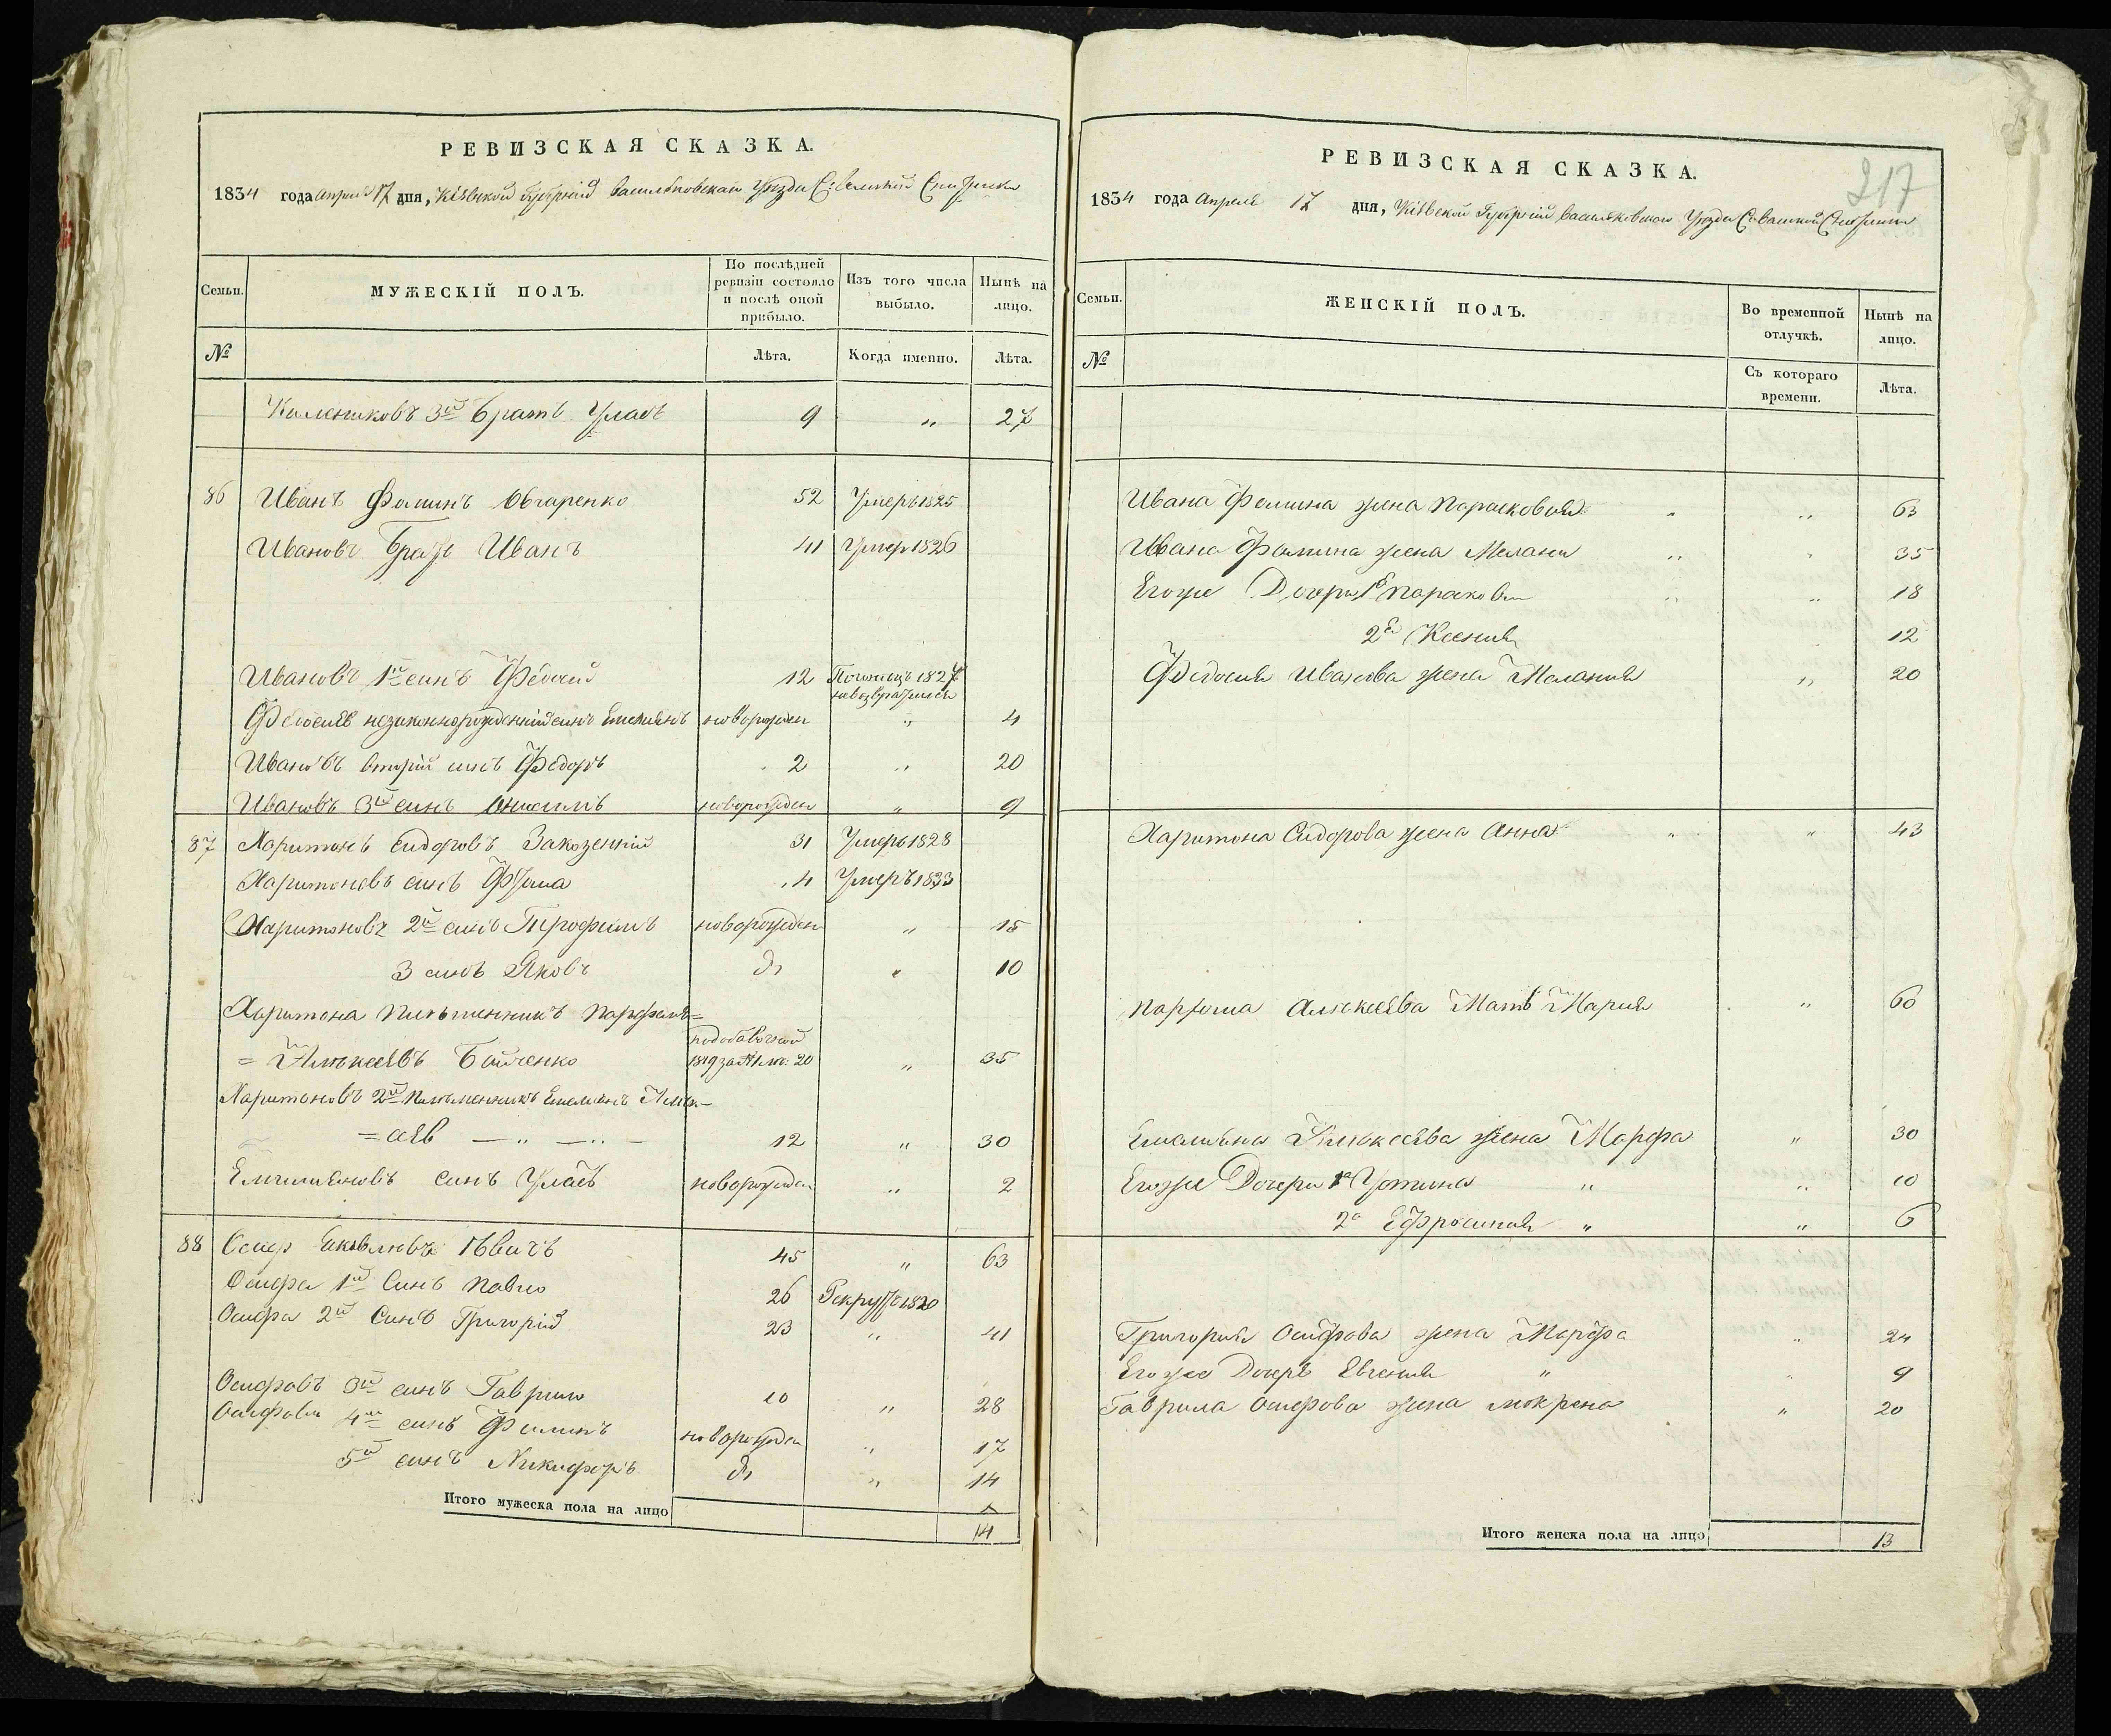 РЕВИЗСКАЯ СКАЗКА.
1834 года апреля 17 дня, Кіевской Губерніи Васильковскаго Уезда
Семьи.
МУЖЕСКІЙ ПОЛЪ.
По послѣдней ревизіи состояло и послѣ оной прибыло.
Изъ того числа выбыло.
Нынѣ на лицо.
№
Лѣта.
Когда именно.
Лѣта.
3й братъ Уласъ 9 " 27
86 Иванъ Фоминъ Овчаренко 52 Умеръ 1825
Ивановъ братъ Иванъ 41 Умеръ 1826
Ивановъ 1й синъ Федосій 12 1827
незаконнорожденній синъ Емельянъ новорожден " 4
Ивановъ вторій синъ Федоръ 2 " 20
Ивановъ 3й синъ Онисимъ новорожден " 9
87 Харитонъ Сидоровъ 31 Умеръ 1828
Харитоновъ синъ Фома 4 Умеръ 1833
Харитоновъ 2й синъ Трофимъ новорожден " 15
3 синъ Яковъ д " 10
Харитона племенникъ Парфомъ=
= Алексеевъ Бойченко 1819 за № лю: 20 " 35
Харитоновъ 2й племенникъ Емельянъ Алек-
=сеев — " — " - 12 " 30
Емельяновъ синъ Уласъ новорожден " 2
88 Осип Яковлевъ 45 " 63
Осипа 1й Синъ Павло 26 Рекрутъ 1820
Осипа 2й Синъ Григорій 23 " 41
Осиповъ 3й синъ Гаврило 10 " 28
Осиповъ 4й синъ новорожден " 17
5й синъ Никифоръ д " 14
Итого мужеска пола на лицо 14
РЕВИЗСКАЯ СКАЗКА.
217
1834 года апреля 17 дня, Кіевской Губерніи Васильковскаго Уезда
Семьи.
ЖЕНСКІЙ ПОЛЪ.
Во временной отлучкѣ.
Нынѣ на лицо.
№
Съ котораго времени.
Лѣта.
Ивана Фомина жена Парасковия " " 63
Ивана Фомина жена Мелания " " 35
Егоже Дочери 1я Парасковия " " 18
2я Ксения 12
Федосия Иванова жена Мелания " 20
Харитона Сидорова жена Анна " " 43
Парфома Алексеева Мать Мария " 60
Емельяна Алексеева жена Марфа " 30
Егоже Дочери 1я Устина " " 10
2я Ефросиния " " 6
Григория Осипова жена Марфа " 24
Егоже Дочерь Евгения " " 9
Гаврила Осипова жена Мокрена " 20
Итого женска пола на лицо 13